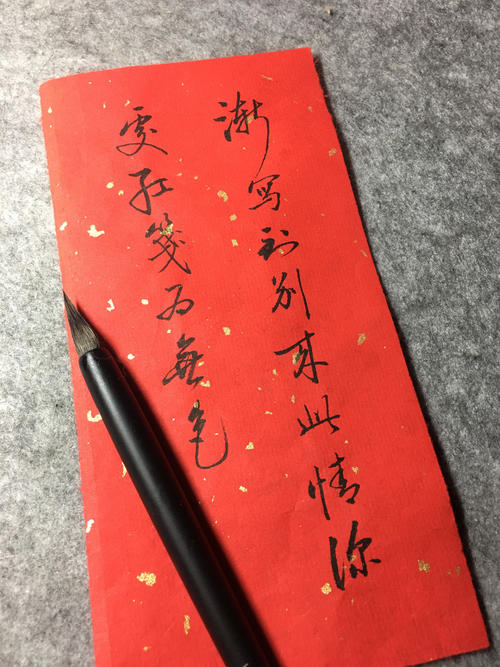 渐写到别来此情深
处红笺为无色